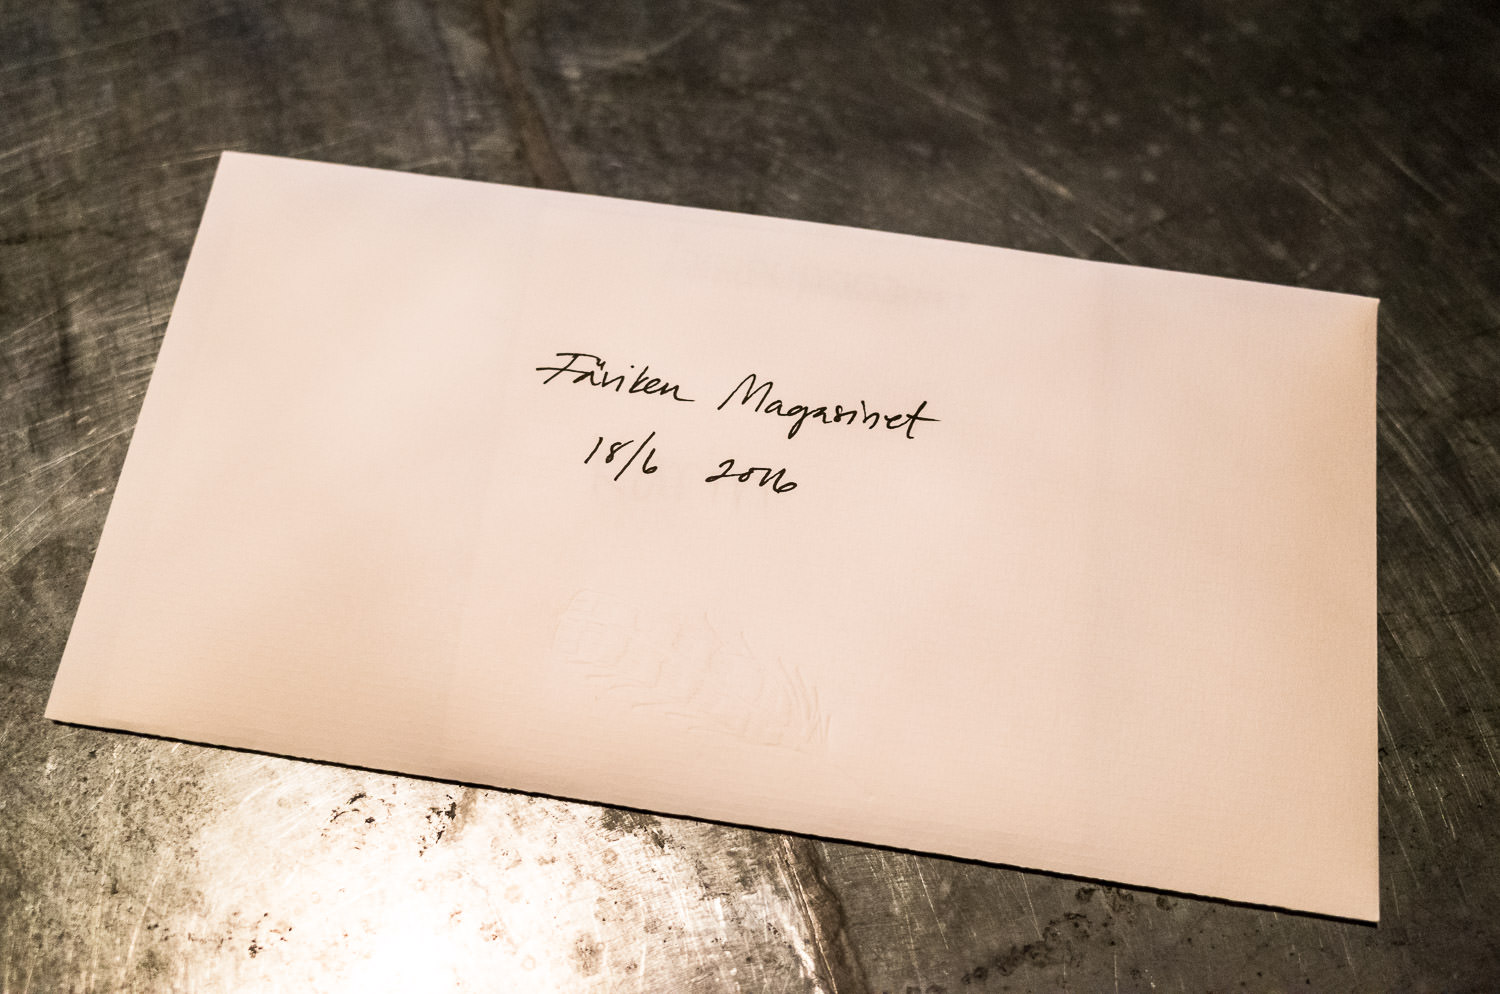 Fäviken Magasinet
18/6 2016